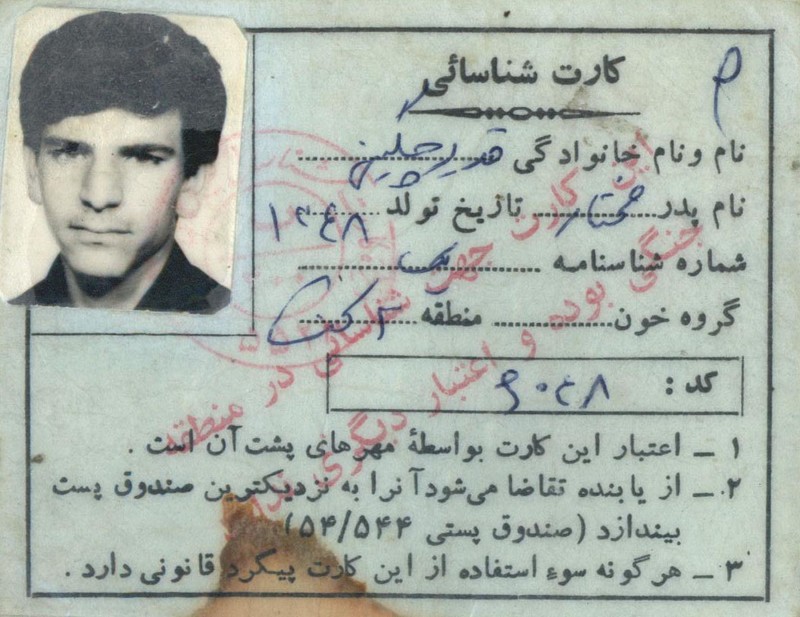 کارت شناسائی
نام و نام خانوادگی قدیر
نام پدر مختار تاریخ تولد
شماره شناسنامه
گروه خون منطقه
کد :
۱ ــ اعتبار این کارت بواسطهٔ مهرهای پشت آن است .
۲ ــ از یابنده تقاضا می‌شود آنرا به نزدیکترین صندوق پست
بیندازد (صندوق پستی ۵۴/۵۴۴)
۳ ــ هرگونه سوء استفاده از این کارت پیگرد قانونی دارد .
این کارت جهت شناسائی در منطقه
جنگی بوده و اعتبار دیگری ندارد